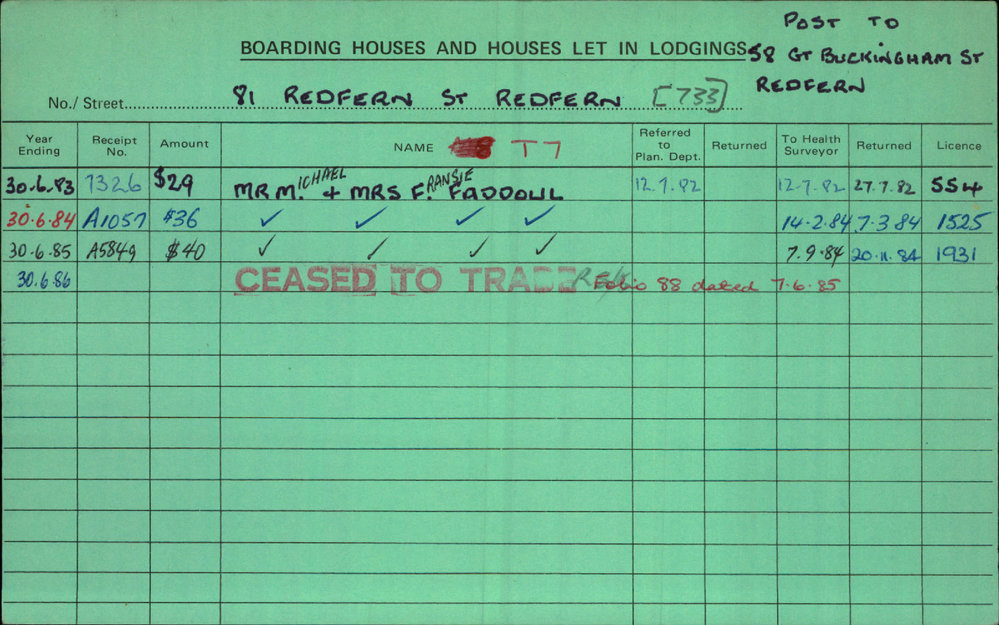 POST TO
BOARDING HOUSES AND HOUSES LET IN LODGINGS 58 GT BUCKINGHAM ST
REDFERN
No./ Street 81 REDFERN ST REDFERN [733]
Year Ending Receipt No. Amount NAME T7 Referred to Plan. Dept. Returned To Health Surveyor Returned Licence
30.6.83 1326 $29 MR MICHAEL + MRS FRANSIE FADDOUL 12.7.82 12.7.82 27.7.82 554
30.6.84 A1057 $36 ✓ ✓ ✓ ✓ 14.2.84 7.3.84 1525
30.6.85 A5849 $40 ✓ ✓ ✓ ✓ 7.9.84 20.11.84 1931
30.6.86 CEASED TO TRADE Folio 88 dated 7.6.85